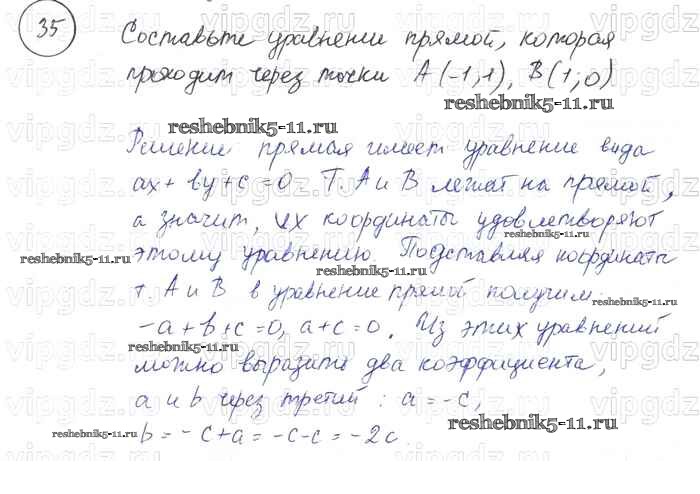 35
Составьте уравнение прямой, которая
проходит через точки A(-1;1), B(1;0)
reshebnik5-11.ru
Решение прямая имеет уравнение вида
ax + by + c = 0. Т. A и B лежат на прямой,
а значит, их координаты удовлетворяют
reshebnik5-11.ru
этому уравнению. Подставляя координаты
reshebnik5-11.ru
reshebnik5-11.ru
т. A и B в уравнение прямой получим:
-a + b + c = 0, a + c = 0. Из этих уравнений
reshebnik5-11.ru
можно выразить два коэффициента,
a и b через третий: a = -c,
reshebnik5-11.ru
reshebnik5-11.ru
b = -c + a = -c - c = -2c.